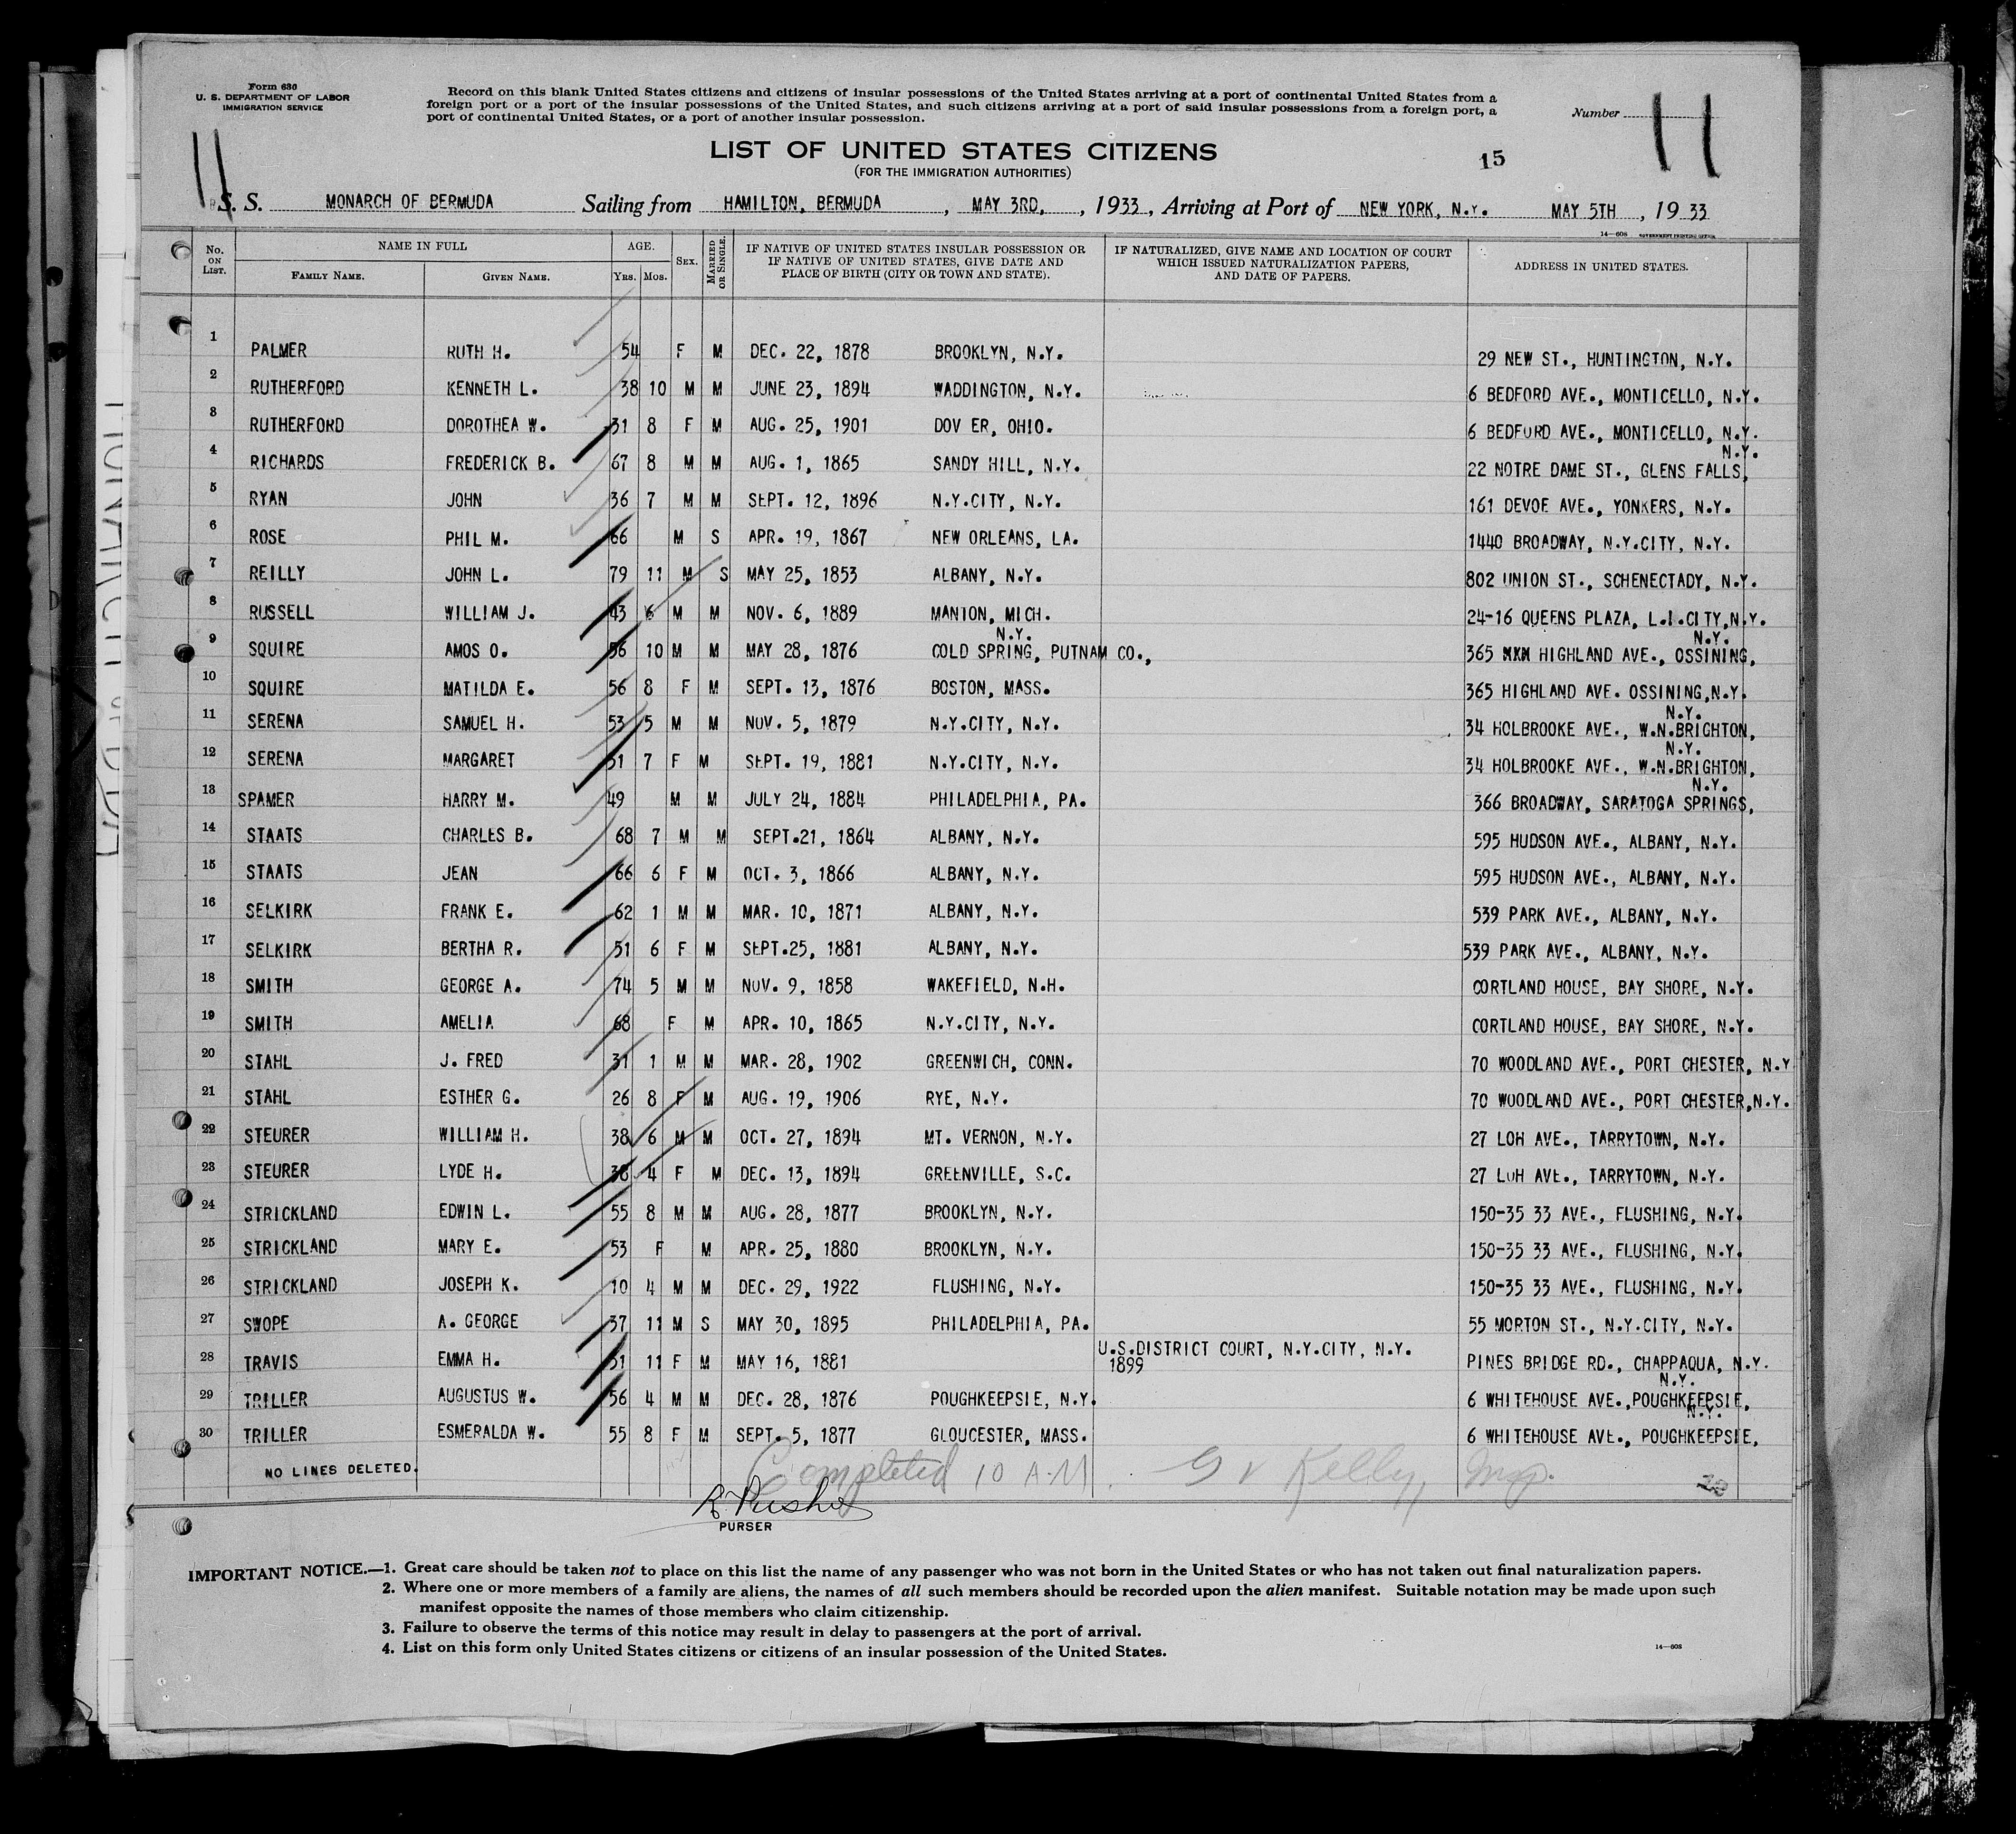 Form 630
U. S. DEPARTMENT OF LABOR
IMMIGRATION SERVICE
Record on this blank United States citizens and citizens of insular possessions of the United States arriving at a port of continental United States from a
foreign port or a port of the insular possessions of the United States, and such citizens arriving at a port of said insular possessions from a foreign port, a
port of continental United States, or a port of another insular possession.
Number 11
11
LIST OF UNITED STATES CITIZENS
(FOR THE IMMIGRATION AUTHORITIES)
15
S. S. MONARCH OF BERMUDA Sailing from HAMILTON, BERMUDA, MAY 3RD, , 1933, Arriving at Port of NEW YORK, N.Y. MAY 5TH, 1933
14—608 GOVERNMENT PRINTING OFFICE
No. ON LIST. NAME IN FULL FAMILY NAME. GIVEN NAME. AGE. Yrs. Mos. SEX. MARRIED OR SINGLE. IF NATIVE OF UNITED STATES INSULAR POSSESSION OR IF NATIVE OF UNITED STATES, GIVE DATE AND PLACE OF BIRTH (CITY OR TOWN AND STATE). IF NATURALIZED, GIVE NAME AND LOCATION OF COURT WHICH ISSUED NATURALIZATION PAPERS, AND DATE OF PAPERS. ADDRESS IN UNITED STATES.
1 PALMER RUTH H. 54 F M DEC. 22, 1878 BROOKLYN, N.Y. 29 NEW ST., HUNTINGTON, N.Y.
2 RUTHERFORD KENNETH L. 38 10 M M JUNE 23, 1894 WADDINGTON, N.Y. 6 BEDFORD AVE., MONTICELLO, N.Y.
3 RUTHERFORD DOROTHEA W. 31 8 F M AUG. 25, 1901 DOV ER, OHIO. 6 BEDFORD AVE., MONTICELLO, N.Y.
4 RICHARDS FREDERICK B. 67 8 M M AUG. 1, 1865 SANDY HILL, N.Y. 22 NOTRE DAME ST., GLENS FALLS, N.Y.
5 RYAN JOHN 36 7 M M SEPT. 12, 1896 N.Y.CITY, N.Y. 161 DEVOE AVE., YONKERS, N.Y.
6 ROSE PHIL M. 66 M S APR. 19, 1867 NEW ORLEANS, LA. 1440 BROADWAY, N.Y.CITY, N.Y.
7 REILLY JOHN L. 79 11 M S MAY 25, 1853 ALBANY, N.Y. 802 UNION ST., SCHENECTADY, N.Y.
8 RUSSELL WILLIAM J. 43 6 M M NOV. 6, 1889 MANION, MICH. 24-16 QUEENS PLAZA, L.I.CITY,N.Y.
9 SQUIRE AMOS O. 56 10 M M MAY 28, 1876 COLD SPRING, PUTNAM CO., N.Y. 365 XXX HIGHLAND AVE., OSSINING, N.Y.
10 SQUIRE MATILDA E. 56 8 F M SEPT. 13, 1876 BOSTON, MASS. 365 HIGHLAND AVE. OSSINING,N.Y.
11 SERENA SAMUEL H. 53 5 M M NOV. 5, 1879 N.Y.CITY, N.Y. 34 HOLBROOKE AVE., W.N.BRIGHTON, N.Y.
12 SERENA MARGARET 51 7 F M SEPT. 19, 1881 N.Y.CITY, N.Y. 34 HOLBROOKE AVE., W.N.BRIGHTON, N.Y.
13 SPAMER HARRY M. 49 M M JULY 24, 1884 PHILADELPHIA, PA. 366 BROADWAY, SARATOGA SPRINGS, N.Y.
14 STAATS CHARLES B. 68 7 M M SEPT.21, 1864 ALBANY, N.Y. 595 HUDSON AVE., ALBANY, N.Y.
15 STAATS JEAN 66 6 F M OCT. 3, 1866 ALBANY, N.Y. 595 HUDSON AVE., ALBANY, N.Y.
16 SELKIRK FRANK E. 62 1 M M MAR. 10, 1871 ALBANY, N.Y. 539 PARK AVE., ALBANY, N.Y.
17 SELKIRK BERTHA R. 51 6 F M SEPT.25, 1881 ALBANY, N.Y. 539 PARK AVE., ALBANY, N.Y.
18 SMITH GEORGE A. 74 5 M M NOV. 9, 1858 WAKEFIELD, N.H. CORTLAND HOUSE, BAY SHORE, N.Y.
19 SMITH AMELIA 68 F M APR. 10, 1865 N.Y.CITY, N.Y. CORTLAND HOUSE, BAY SHORE, N.Y.
20 STAHL J. FRED 31 1 M M MAR. 28, 1902 GREENWICH, CONN. 70 WOODLAND AVE., PORT CHESTER, N.Y
21 STAHL ESTHER G. 26 8 F M AUG. 19, 1906 RYE, N.Y. 70 WOODLAND AVE., PORT CHESTER,N.Y.
22 STEURER WILLIAM H. 38 6 M M OCT. 27, 1894 MT. VERNON, N.Y. 27 LOH AVE., TARRYTOWN, N.Y.
23 STEURER LYDE H. 38 4 F M DEC. 13, 1894 GREENVILLE, S.C. 27 LOH AVE., TARRYTOWN, N.Y.
24 STRICKLAND EDWIN L. 55 8 M M AUG. 28, 1877 BROOKLYN, N.Y. 150-35 33 AVE., FLUSHING, N.Y.
25 STRICKLAND MARY E. 53 F M APR. 25, 1880 BROOKLYN, N.Y. 150-35 33 AVE., FLUSHING, N.Y.
26 STRICKLAND JOSEPH K. 10 4 M M DEC. 29, 1922 FLUSHING, N.Y. 150-35 33 AVE., FLUSHING, N.Y.
27 SWOPE A. GEORGE 37 11 M S MAY 30, 1895 PHILADELPHIA, PA. 55 MORTON ST., N.Y.CITY, N.Y.
28 TRAVIS EMMA H. 51 11 F M MAY 16, 1881 U.S.DISTRICT COURT, N.Y.CITY, N.Y. 1899 PINES BRIDGE RD., CHAPPAQUA, N.Y.
29 TRILLER AUGUSTUS W. 56 4 M M DEC. 28, 1876 POUGHKEEPSIE, N.Y. 6 WHITEHOUSE AVE.,POUGHKEEPSIE, N.Y.
30 TRILLER ESMERALDA W. 55 8 F M SEPT. 5, 1877 GLOUCESTER, MASS. 6 WHITEHOUSE AVE., POUGHKEEPSIE, N.Y.
NO LINES DELETED. Completed 10 A.M. G V Kelly,
PURSER
IMPORTANT NOTICE.—1. Great care should be taken not to place on this list the name of any passenger who was not born in the United States or who has not taken out final naturalization papers.
2. Where one or more members of a family are aliens, the names of all such members should be recorded upon the alien manifest. Suitable notation may be made upon such
manifest opposite the names of those members who claim citizenship.
3. Failure to observe the terms of this notice may result in delay to passengers at the port of arrival.
4. List on this form only United States citizens or citizens of an insular possession of the United States.
14—608